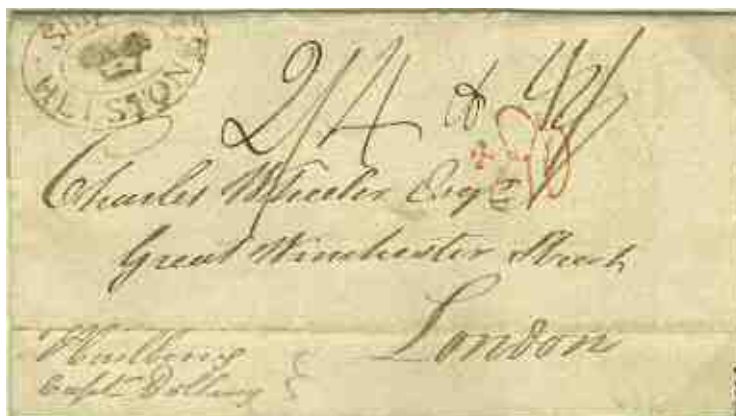 Ship
HELSTON
2/4 &
Charles Wheeler Esqre
Great Winchester Street
London
Capt.